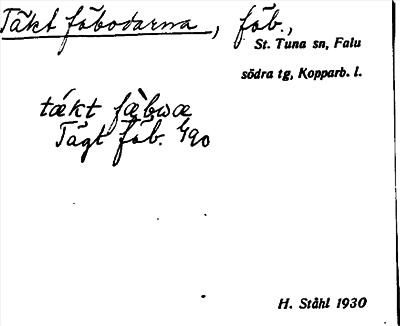 Täkt fäbodarna, fäb.,
St. Tuna sn, Falu
södra tg, Kopparb. l.
tǽkt fæ̀bωæ
Tägt fäb. 1/90
H. Ståhl 1930